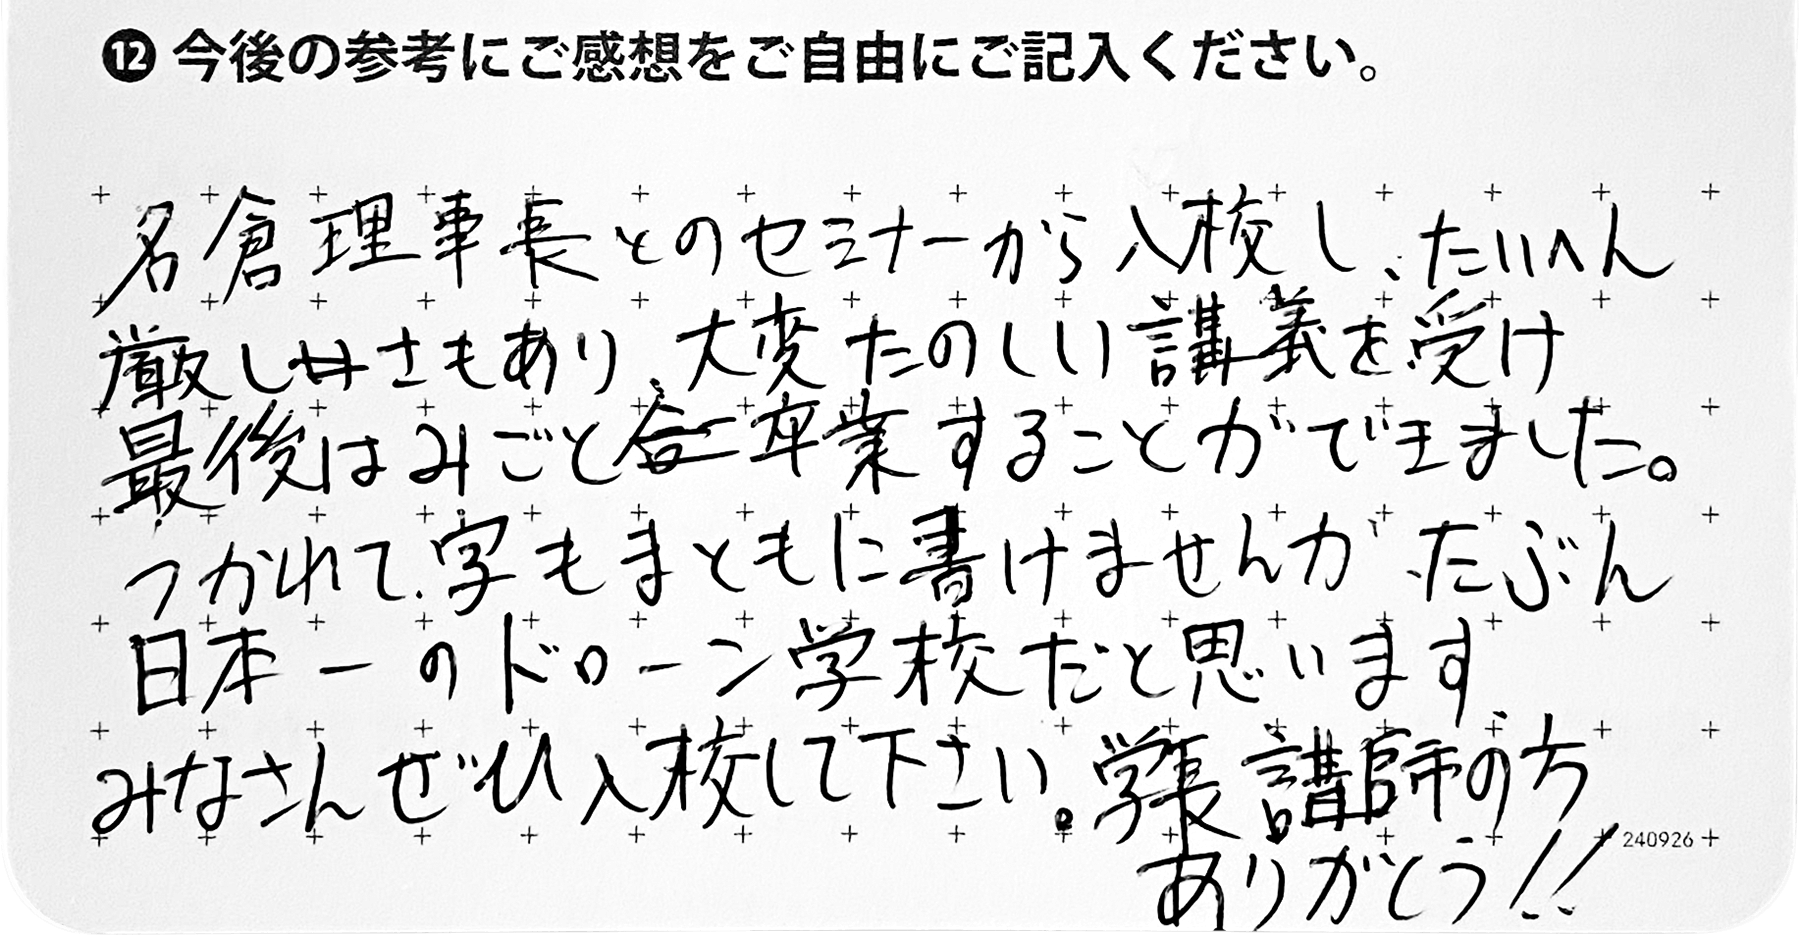 ⓬今後の参考にご感想をご自由にご記入ください。
名倉理事長とのセミナーから入校し、たいへん
厳しさもあり、大変たのしい講義を受け
最後はみごと卒業することができました。
つかれて、字もまともに書けませんが、たぶん
日本一のドローン学校だと思います
みなさんぜひ入校して下さい。学長講師の方
240926
ありがとう!!